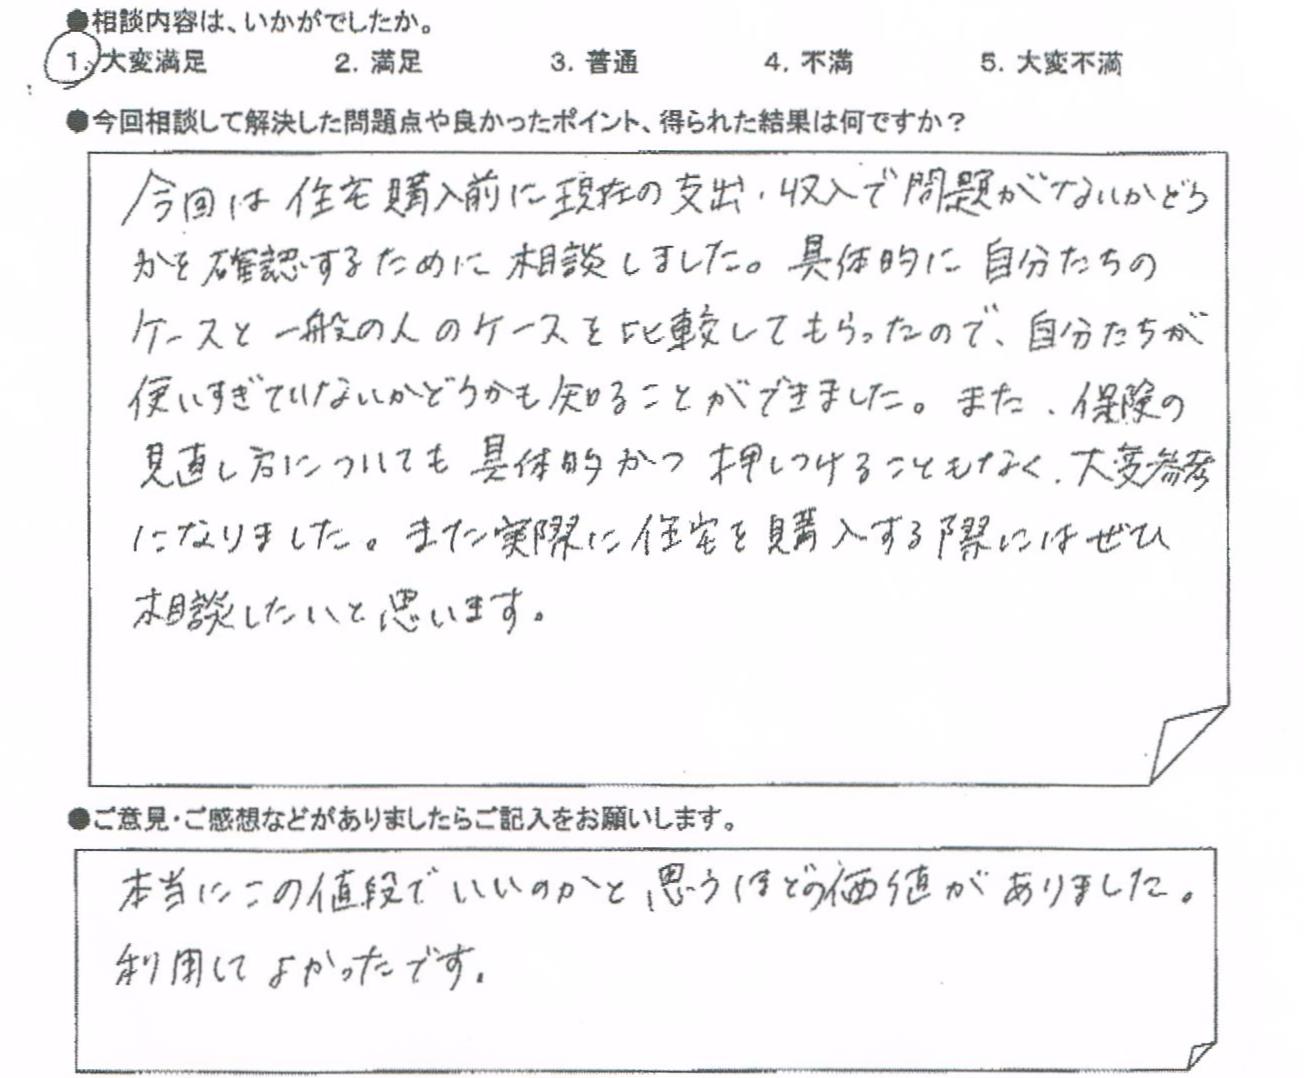 ●相談内容は、いかがでしたか。
1. 大変満足 2. 満足 3. 普通 4. 不満 5. 大変不満
●今回相談して解決した問題点や良かったポイント、得られた結果は何ですか？
今回は住宅購入前に現在の支出・収入で問題がないかどう
かを確認するために相談しました。具体的に自分たちの
ケースと一般の人のケースを比較してもらったので、自分たちが
使いすぎていないかどうかも知ることができました。また、保険の
見直し方についても具体的かつ押しつけることもなく、大変参考
になりました。また実際に住宅を購入する際にはぜひ
相談したいと思います。
●ご意見・ご感想などがありましたらご記入をお願いします。
本当にこの値段でいいのかと思うほどの価値がありました。
利用してよかったです。